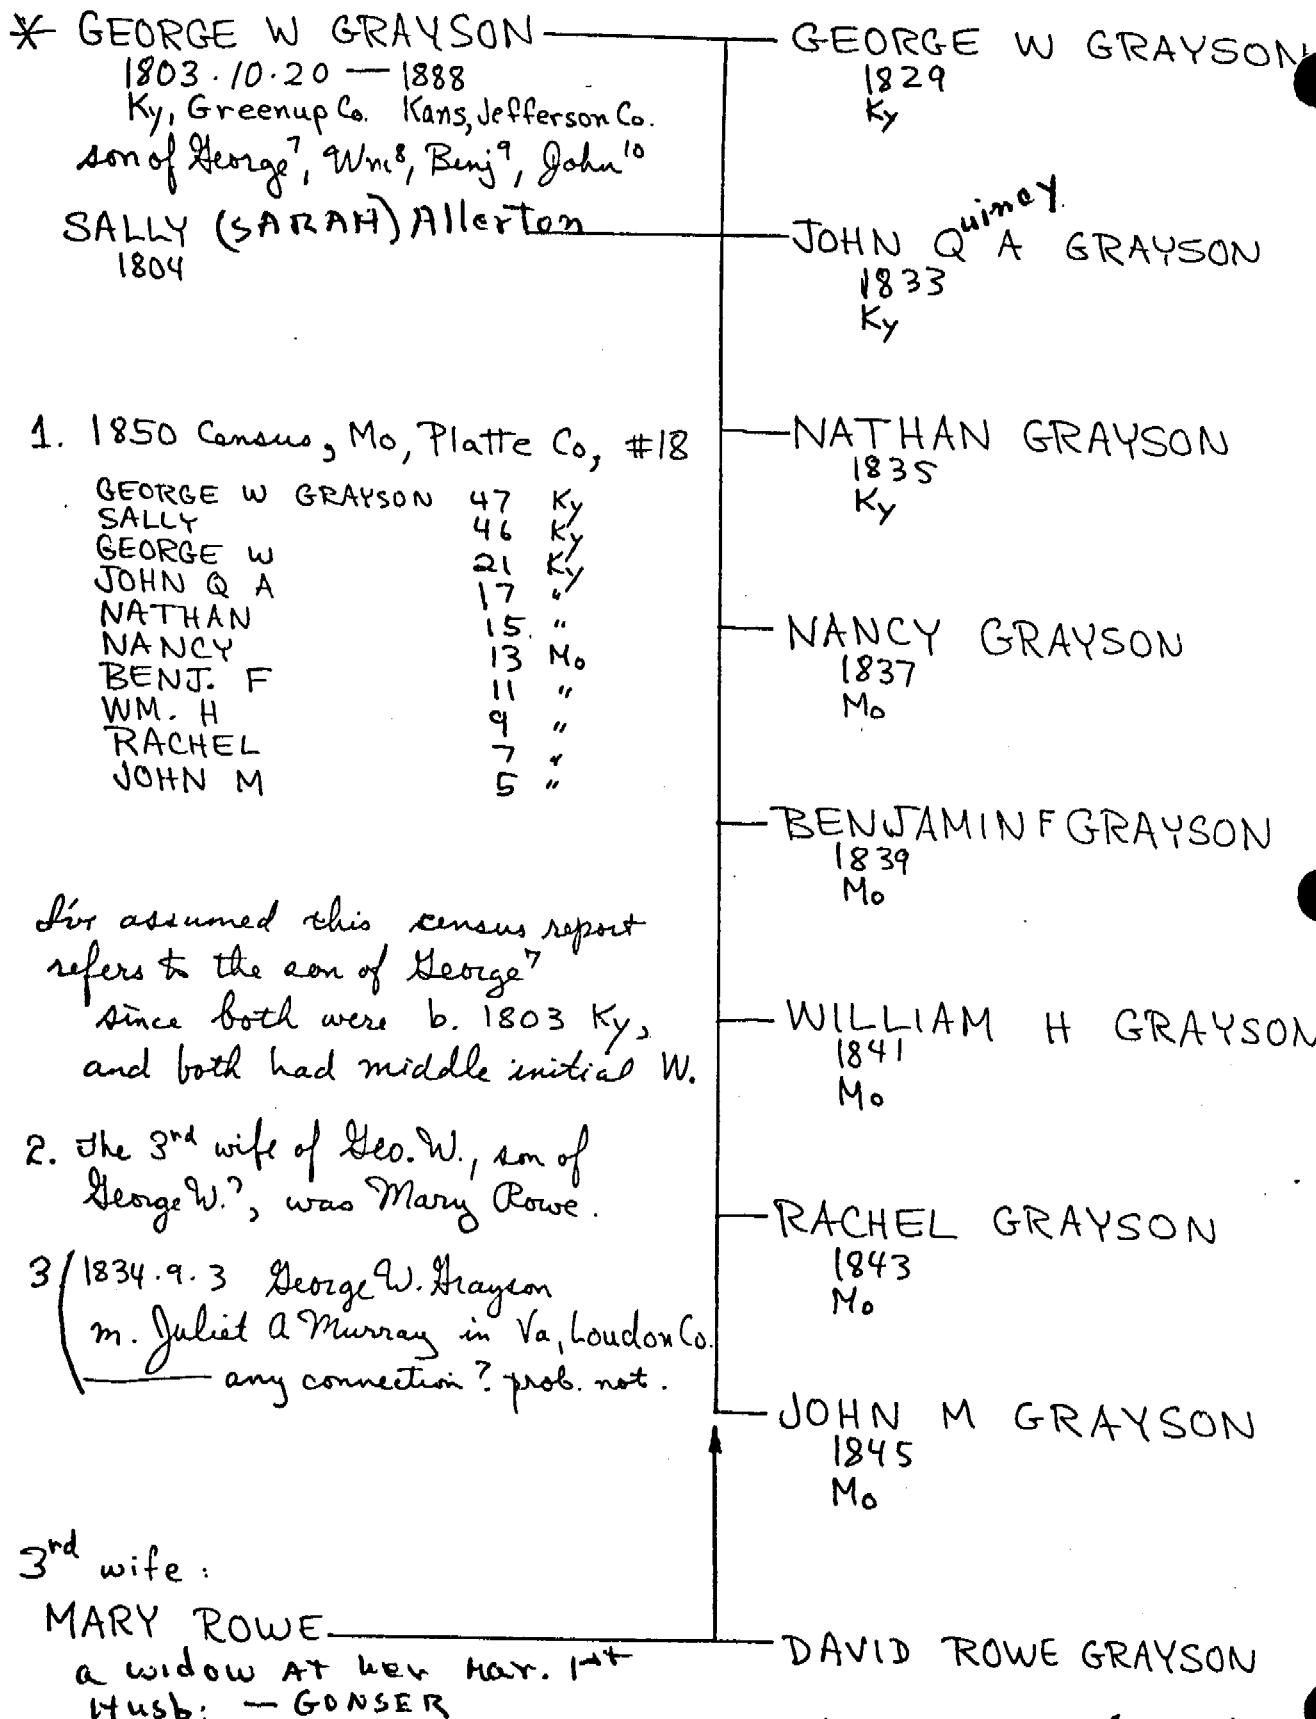 * GEORGE W GRAYSON
1803.10.20 — 1888
Ky, Greenup Co. Kans, Jefferson Co.
son of George⁷, Wm⁸, Benj⁹, John¹⁰
SALLY (SARAH) Allerton
1804
1. 1850 Census, Mo, Platte Co, #18
GEORGE W GRAYSON 47 Ky
SALLY 46 Ky
GEORGE W 21 Ky
JOHN Q A 17 "
NATHAN 15 "
NANCY 13 Mo
BENJ. F 11 "
WM. H 9 "
RACHEL 7 "
JOHN M 5 "
I've assumed this census report
refers to the son of George⁷
since both were b. 1803 Ky,
and both had middle initial W.
2. The 3rd wife of Geo. W., son of
George W.⁷, was Mary Rowe.
3 1834.9.3 George W. Grayson
m. Juliet A Murray in Va, Loudon Co.
— any connection? prob. not.
3rd wife:
MARY ROWE
a widow AT her Mar. 1st
Husb: — GONSER
GEORGE W GRAYSON
1829
Ky
JOHN Quincy A GRAYSON
1833
Ky
NATHAN GRAYSON
1835
Ky
NANCY GRAYSON
1837
Mo
BENJAMIN F GRAYSON
1839
Mo
WILLIAM H GRAYSON
1841
Mo
RACHEL GRAYSON
1843
Mo
JOHN M GRAYSON
1845
Mo
DAVID ROWE GRAYSON